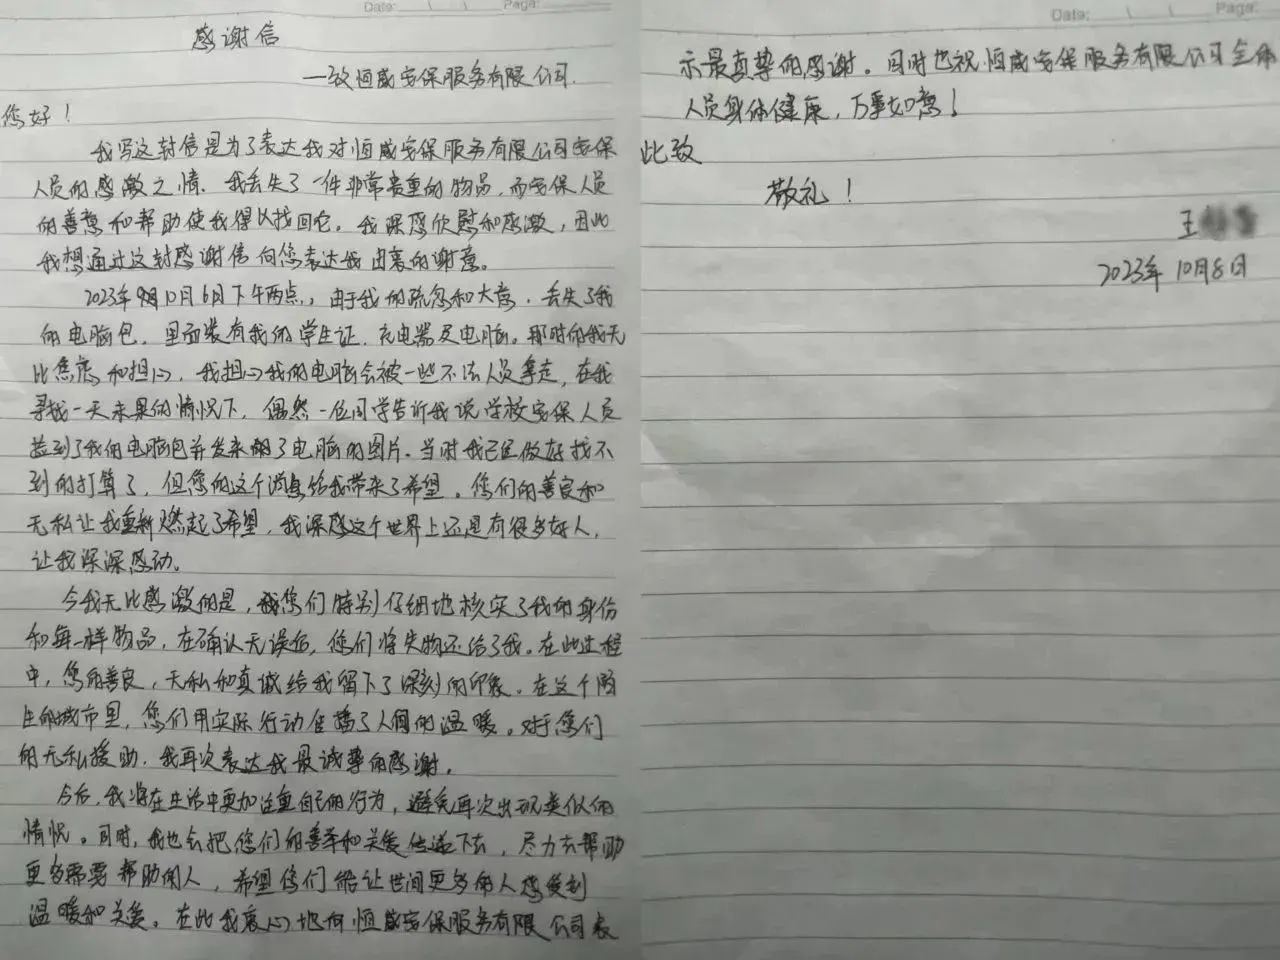 Date: \ \ Page:
感谢信
—致恒威安保服务有限公司.
您好！
我写这封信是为了表达我对恒威安保服务有限公司安保
人员的感激之情．我丢失了一件非常贵重的物品，而安保人员
的善意和帮助使我得以找回它。我深感欣慰和感激，因此
我想通过这封感谢信向您表达我由衷的谢意。
2023年10月6日下午两点，由于我的疏忽和大意．丢失了我
的电脑包．里面装有我的学生证．充电器及电脑。那时的我无
比焦虑和担心．我担心我的电脑会被一些不法人员拿走，在我
寻找一天未果的情况下，偶然一位同学告诉我说学校安保人员
捡到了我的电脑包并发来了电脑的图片．当时我已经做好找不
到的打算了，但您的这个消息给我带来了希望。您们的善良和
无私让我重新燃起了希望，我深感这个世界上还是有很多好人，
让我深深感动。
令我无比感激的是，您们特别仔细地核实了我的身份
和每一样物品，在确认无误后，您们将失物还给了我。在此过程
中，您的善良，无私和真诚给我留下了深刻的印象。在这个陌
生的城市里，您们用实际行动传播了人间的温暖。对于您们
的无私援助．我再次表达我最诚挚的感谢。
今后，我将在生活中更加注重自己的行为，避免再次出现类似的
情况。同时，我也会把您们的善举和关爱传递下去，尽力去帮助
更多需要帮助的人，希望您们能让世间更多的人感受到
温暖和关爱。在此我衷心地向恒威安保服务有限公司表
Date: \ \ Page:
示最真挚的感谢。同时也祝恒威安保服务有限公司全体
人员身体健康，万事如意！
此致
敬礼！
王
2023年10月8日